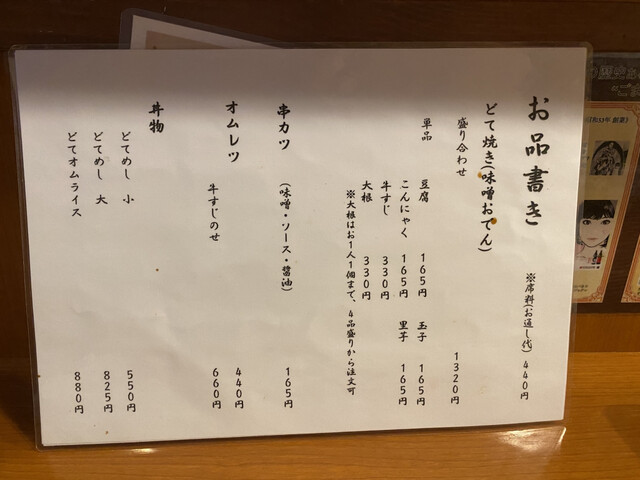 お品書き
※席料(お通し代) 440円
どて焼き(味噌おでん)
盛り合わせ 1320円
単品 豆腐 165円 玉子 165円
こんにゃく 165円 里芋 165円
牛すじ 330円
大根 330円
※大根はお1人1個まで、4品盛りから注文可
串カツ (味噌・ソース・醤油) 165円
オムレツ 440円
牛すじのせ 660円
丼物
どてめし 小 550円
どてめし 大 825円
どてオムライス 880円